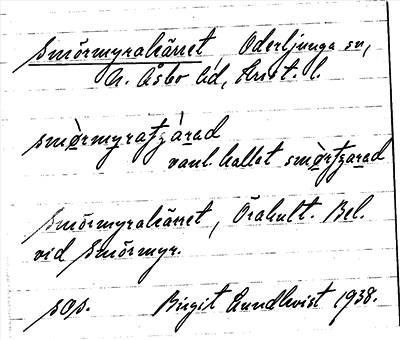 Smörmyrakärret Oderljunga sn,
N. Åsbo hd, Krist. l.
smörmyratzärad
vanl. kallat smörtzarad
Smörmyrakärret, Örahult. Bel.
vid Smörmyr.
sos. Birgit Lundkvist 1938.